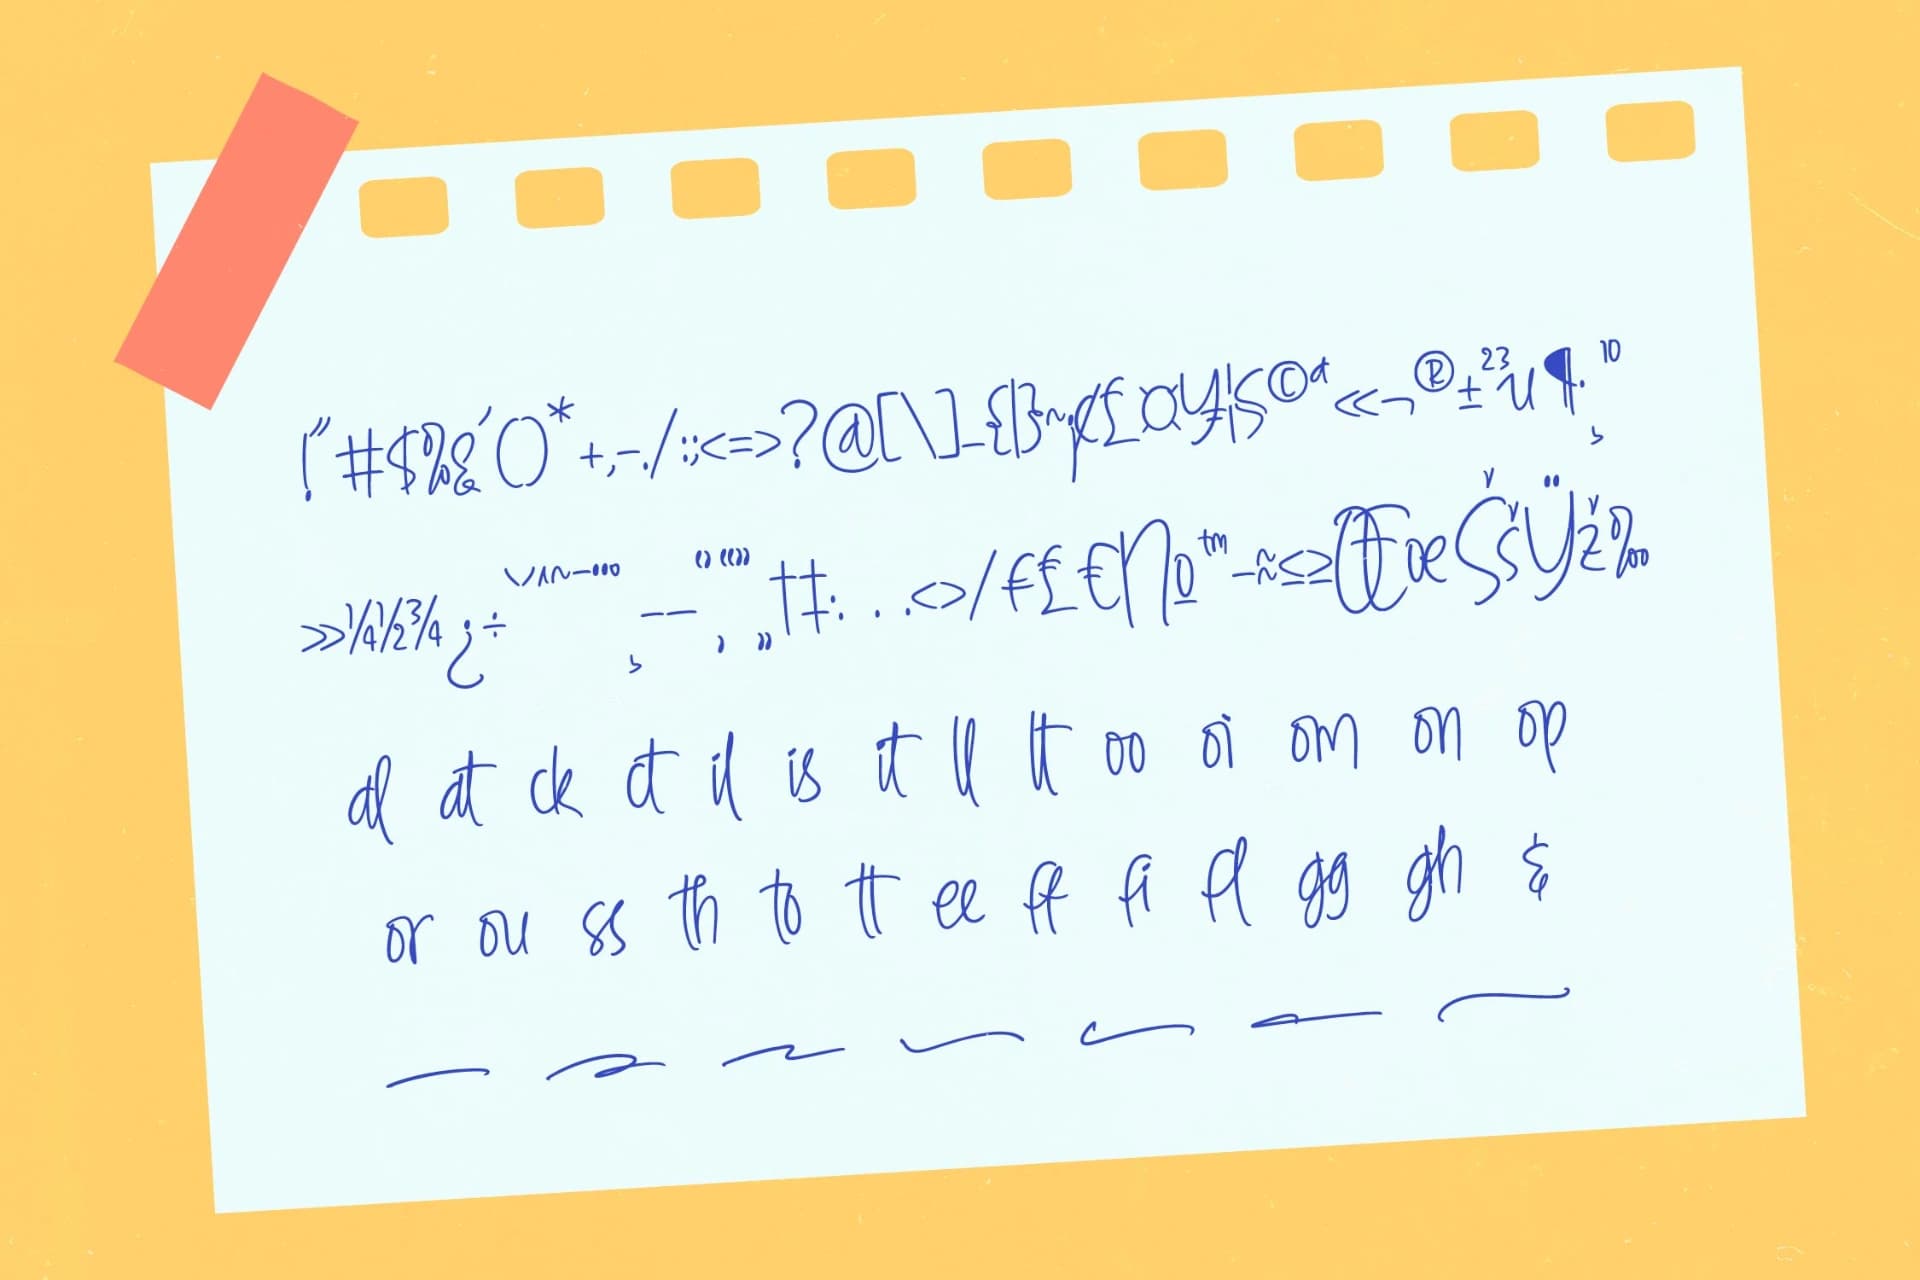 !"#$%&'()*+,-./:;<=>?@[\]_{|}~¡¢£¤¥¦§©ª«¬®±²³µ¶·¸¹º
»¼½¾¿÷ˇˆ˜¯˘˙¨˚¸–—‘’‚“”„†‡•…‹›/€₤€∏Ω™−≈≤≥ŒœŠšŸž‰
al at ck ct il is it ll lt oo oi om on op
or ou ss th to tt ee ff fi fl gg gh &